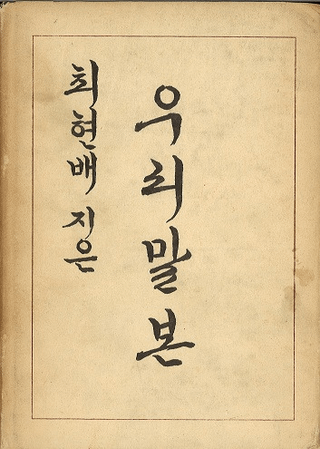 우리말본
최현배 지은